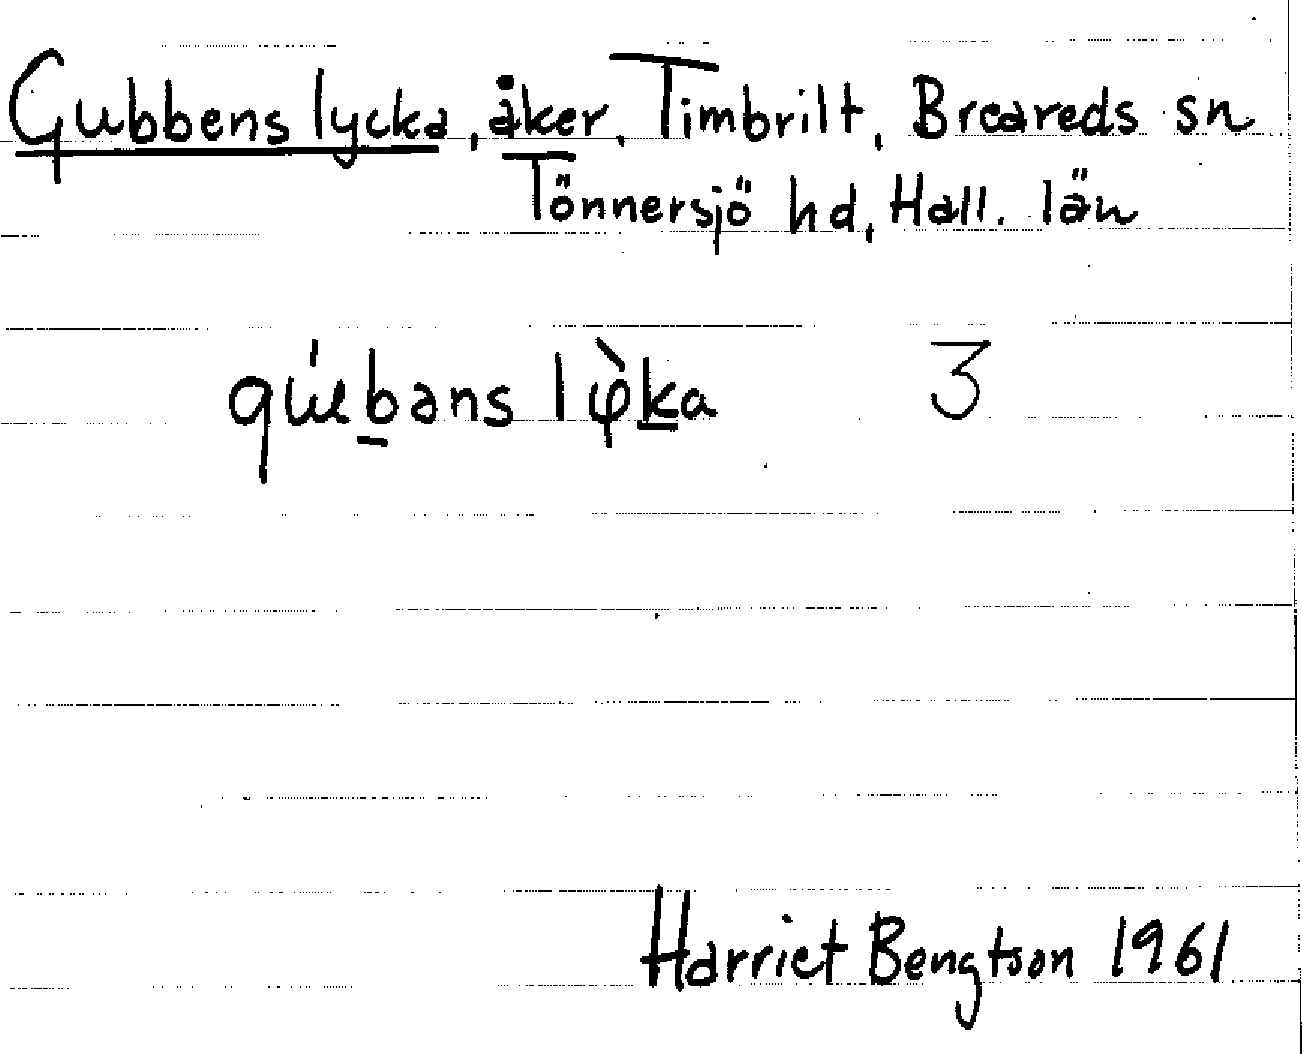 Gubbens lycka, åker, Timbrilt, Breareds sn
Tönnersjö hd, Hall. län
lỳka 3
Harriet Bengtson 1961